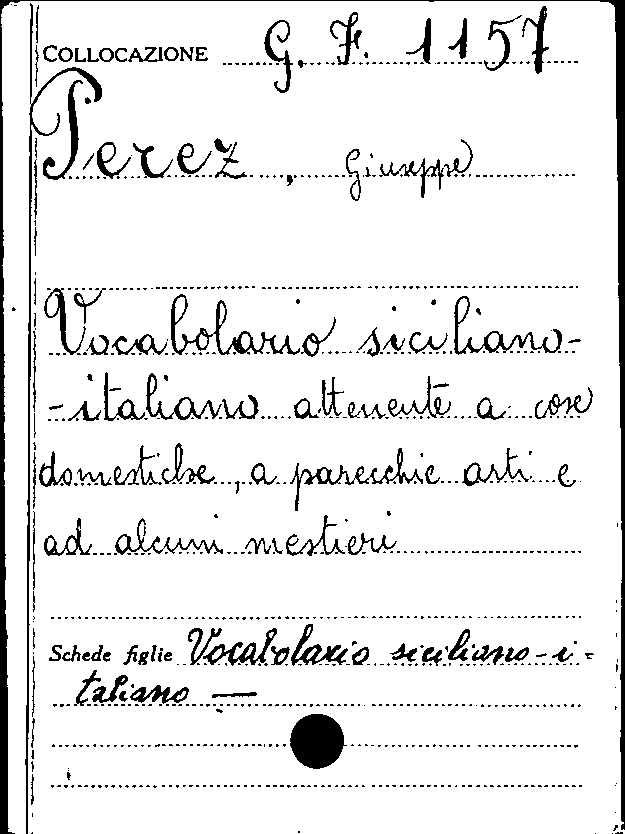 COLLOCAZIONE G. F. 1157
Perez, Giuseppe
Vocabolario siciliano-
-italiano attenente a cose
domestiche, a parecchie arti e
ad alcuni mestieri
Schede figlie Vocabolario siciliano-i=
taliano —